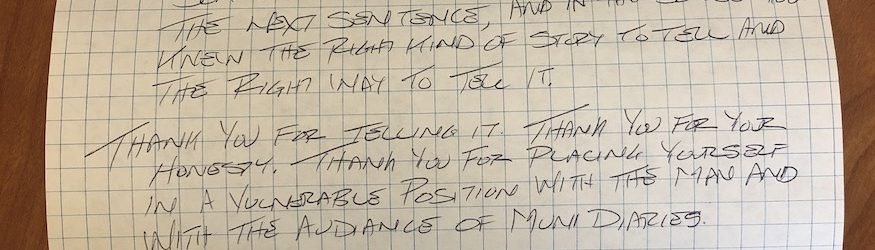 THE NEXT SENTENCE, AND IN THE
KNEW THE RIGHT KIND OF STORY TO TELL AND
THE RIGHT WAY TO TELL IT.
THANK YOU FOR TELLING IT. THANK YOU FOR YOUR
HONESTY. THANK YOU FOR PLACING YOURSELF
IN A VULNERABLE POSITION WITH THE MAN AND
WITH THE AUDIANCE OF MUNI DIARIES.